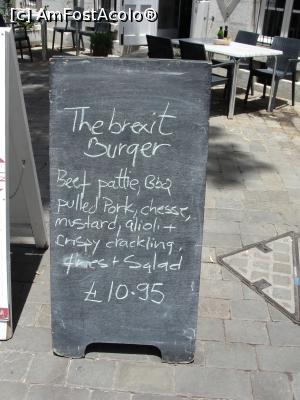 (c) AmFostAcolo®
The brexit
Burger
Beef pattie, Bbq
pulled Pork, chesse,
mustard, alioli +
crispy crackling,
fries + Salad
£10.95